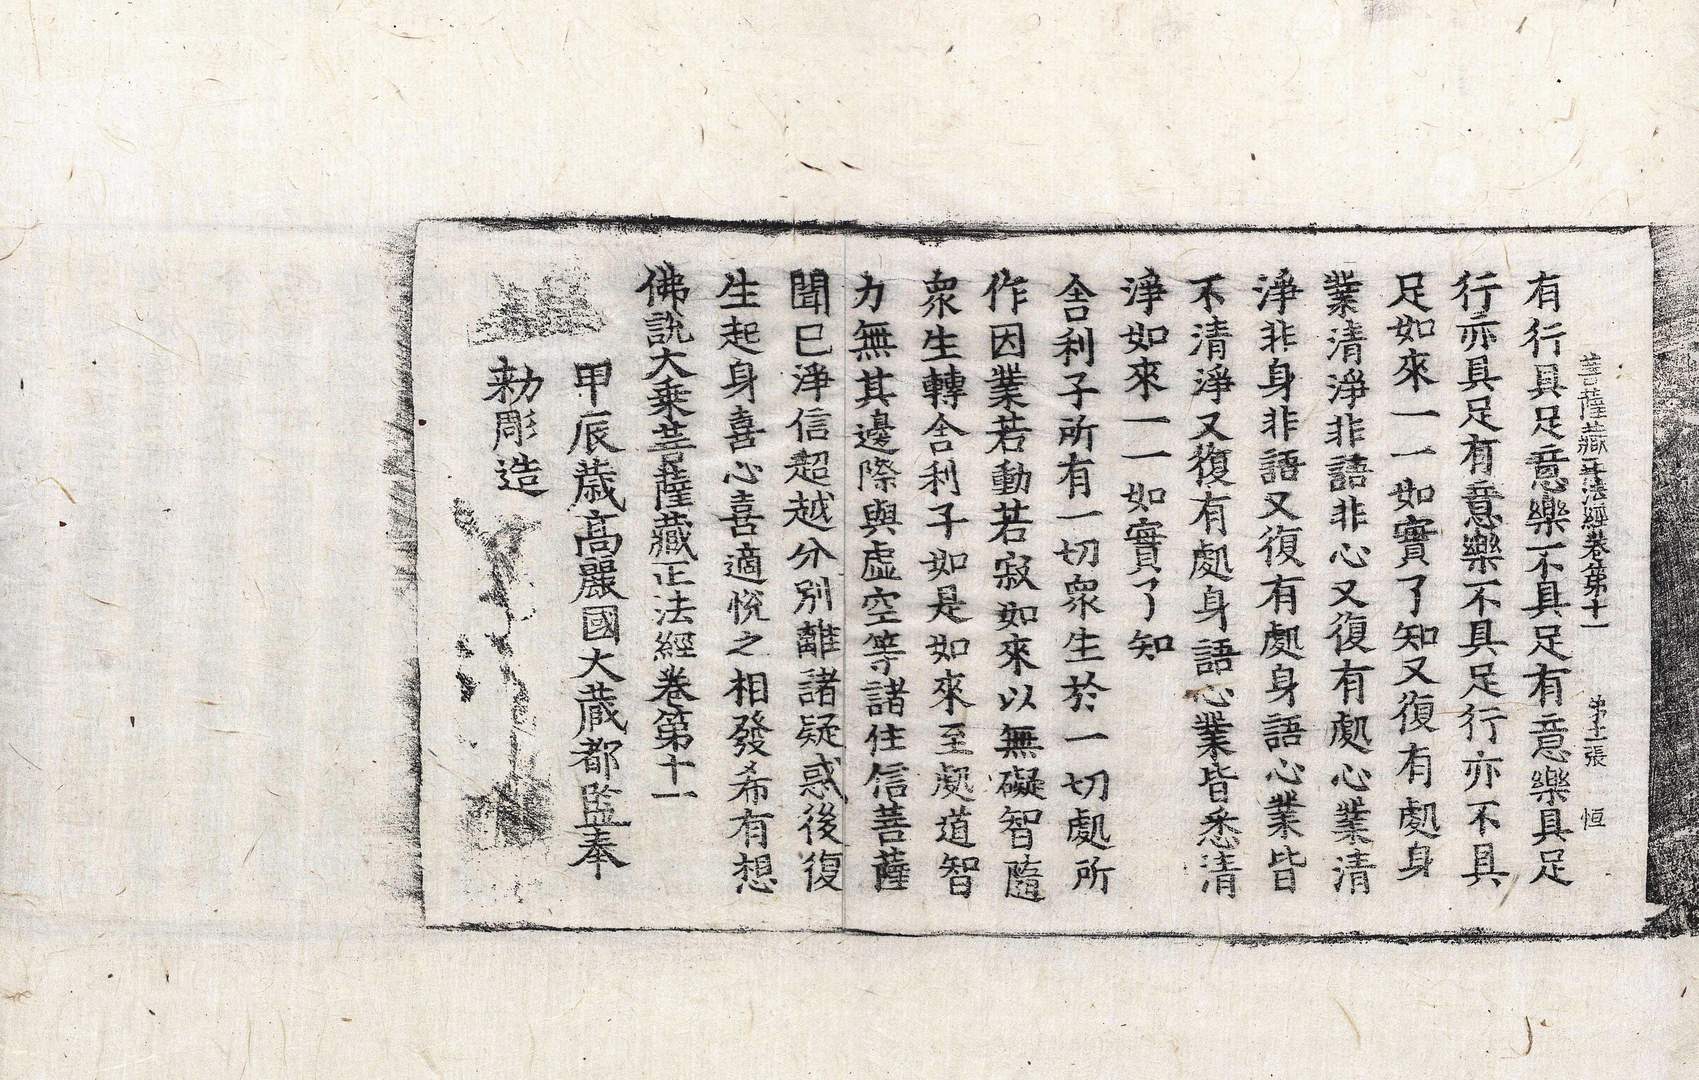 菩薩藏正法經卷第十一 第十一張 恒
有行具足意樂不具足有意樂具足
行亦具足有意樂不具足行亦不具
足如來一一如實了知又復有處身
業清淨非語非心又復有處心業清
淨非身非語又復有處身語心業皆
不清淨又復有處身語心業皆悉清
淨如來一一如實了知
舍利子所有一切衆生於一切處所
作因業若動若寂如來以無礙智隨
衆生轉舍利子如是如來至處道智
力無其邊際與虛空等諸住信菩薩
聞已淨信超越分別離諸疑惑後復
生起身喜心喜適悅之相發希有想
佛說大乘菩薩藏正法經卷第十一
甲辰歲高麗國大藏都監奉
勅彫造